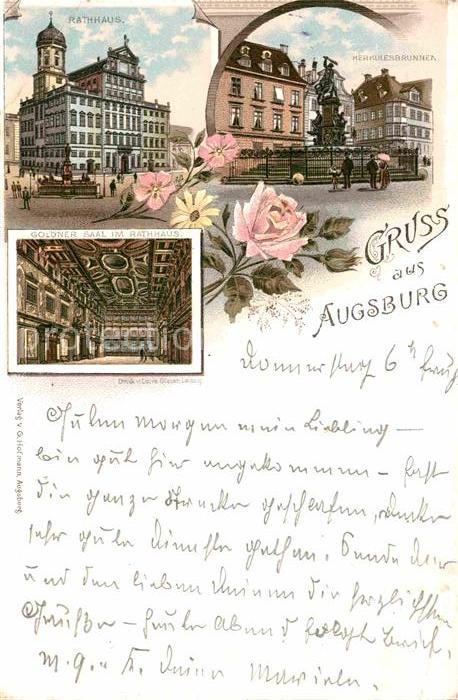 RATHHAUS.
HERKULESBRUNNEN
GOLDNER SAAL IM RATHHAUS.
GRUSS
aus
AUGSBURG
Druck v. Louis Glaser, Leipzig
Verlag v. G. Hofmann, Augsburg
Donnerstag 6 h früh
Guten Morgen mein Liebling —
bin gut hier angekommen — fast
die ganze Strecke geschlafen,
sehr gute Dienste gethan. Sende dir
und den lieben Deinen die herzlichsten
Grüße — heute Abend folgt Bericht.
m. g. u. K. Deine